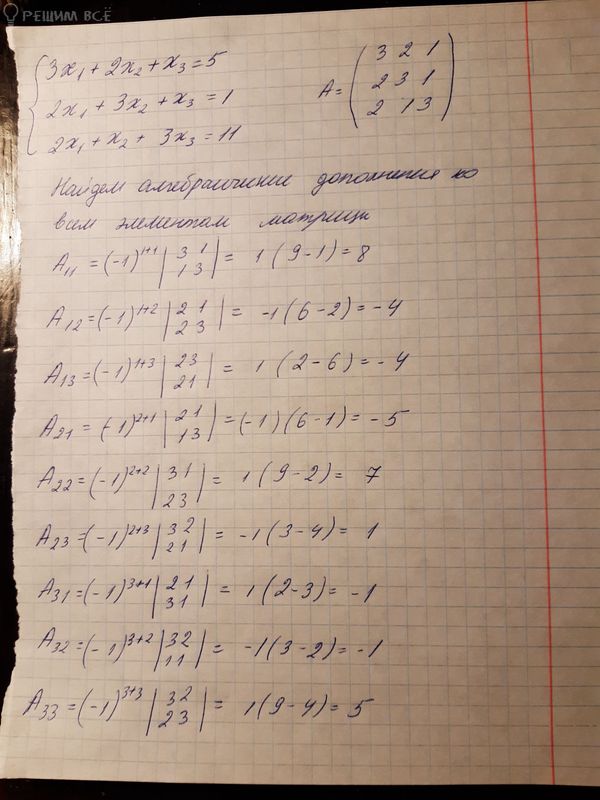 РЕШИМ ВСЁ
3x₁ + 2x₂ + x₃ = 5
2x₁ + 3x₂ + x₃ = 1
2x₁ + x₂ + 3x₃ = 11
A = ( 3 2 1
2 3 1
2 1 3 )
Найдем алгебраические дополнения ко
всем элементам матрицы
A₁₁ = (-1)¹⁺¹ | 3 1 / 1 3 | = 1(9-1) = 8
A₁₂ = (-1)¹⁺² | 2 1 / 2 3 | = -1(6-2) = -4
A₁₃ = (-1)¹⁺³ | 2 3 / 2 1 | = 1(2-6) = -4
A₂₁ = (-1)²⁺¹ | 2 1 / 1 3 | = (-1)(6-1) = -5
A₂₂ = (-1)²⁺² | 3 1 / 2 3 | = 1(9-2) = 7
A₂₃ = (-1)²⁺³ | 3 2 / 2 1 | = -1(3-4) = 1
A₃₁ = (-1)³⁺¹ | 2 1 / 3 1 | = 1(2-3) = -1
A₃₂ = (-1)³⁺² | 3 2 / 1 1 | = -1(3-2) = -1
A₃₃ = (-1)³⁺³ | 3 2 / 2 3 | = 1(9-4) = 5